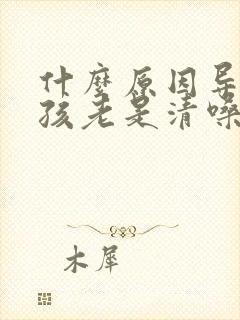 什麼原因导
孩老是清嗓
木犀